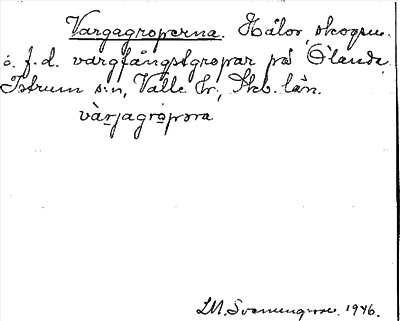 Vargagroperna. Hålor, skogsm.
o. f.d. vargfångstgropar på Ölanda,
Istrum s:n, Valle hr, Skb. län.
vàrjagropora
LM. Svennungsson. 1946.